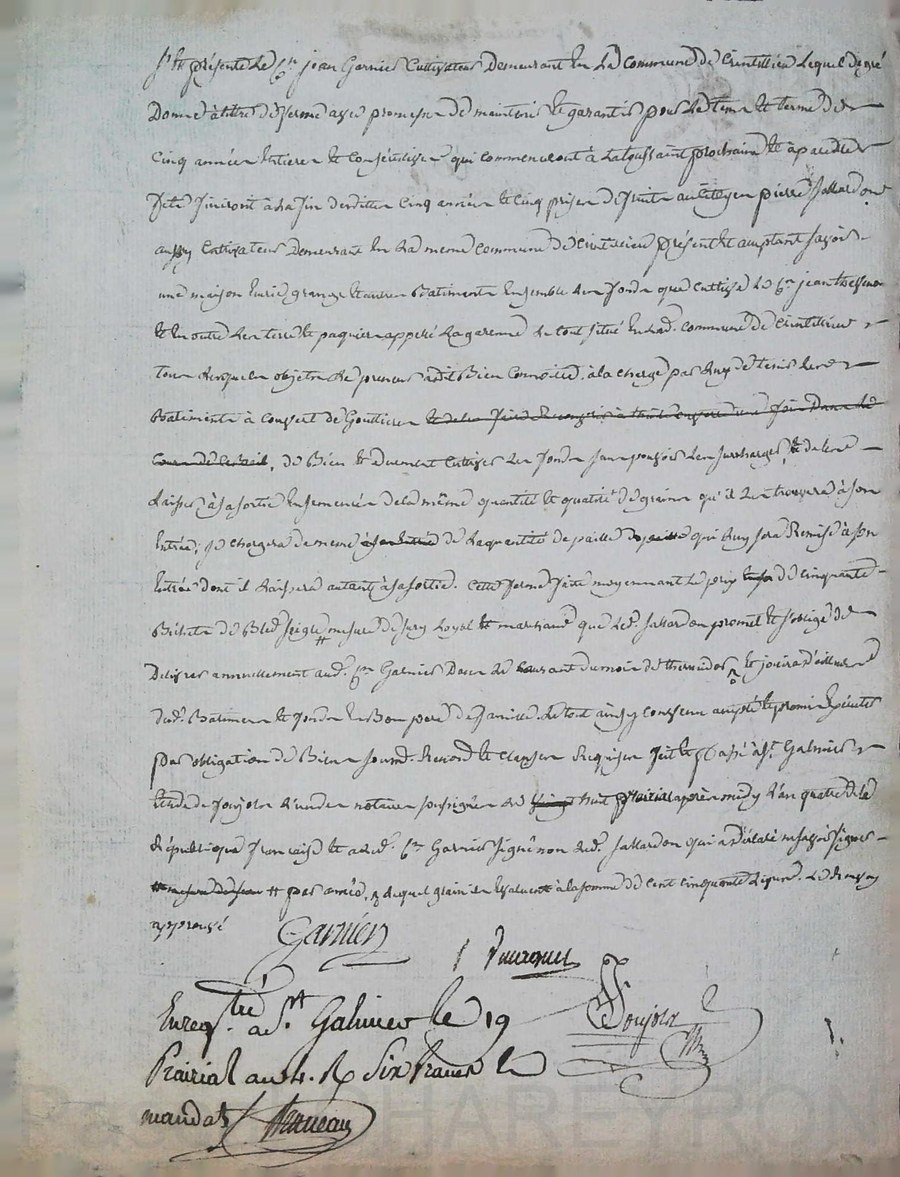 S'est présenté le Cn jean Garnier Cultivateur Demeurant En La Commune de Cuintillieu Lequel de gré
Donne à titre de ferme avec promesse de maintenir et garantir pour Le tems et terme de
Cinq années Entieres et Consécutives qui commenceront à La toussaint prochaine et à pareille
fête finiront à La fin desdittes Cinq années et Cinq prises de fruits au Citoyen pierre Jallardon
aussy Cultivateur Demeurant En La meme Commune de présent et acceptant savoir
une maison Curie grange et autres Batimens Ensemble Les fonds que Cultive Le Cn jean
Et En outre Les terre et paquier appellé La garenne Le tout situé En Lad. Commune de
tous Lesquels objets Le preneur a dit Bien Connoitre. à la charge par Luy de tenir Les
Batimens à Couvert de Gouttieres
de Bien et duement Cultiver Les fonds sans pouvoir Les surcharger, et de Les
Laisser à sa sortie Ensemencés de la même quantité et qualité de graines qu'il Les trouvera à son
Entrée; se chargera de meme de La quantité de paille qui Luy sera Remise à son
Entrée dont il Laissera autant à sa sortie. Cette ferme faite moyennant Le prix de cinquante
Bichets de Bled seigle mesure de fury Loyal et marchand que Led. Jallardon promet et s'oblige de
Délivrer annuellement aud. Cn Garnier Dans Le Courant du mois de thermidor, Et jouira d'ailleurs
desd. Batimens et fonds En Bon pere de famille. Le tout ainsy Convenu accepté et promis Exécuter
par obligation de Biens soumis. Renond. et Clauses Requises fait et passé à St. Galmier
Etude de foujols L'un des notaires soussignés Le huit prairial après midy L'an quatre de la
République française et a Led. Cn Garnier signé non Led. Jallardon qui a Déclaré ne savoir signer
# par année, Lequel grain est Evalué à la somme de Cent cinquante Livres. Le Renvoy
approuvé
Garnier
Enreg.tré à St. Galmier le 19
Prairial an 4. R Six francs En
mandats